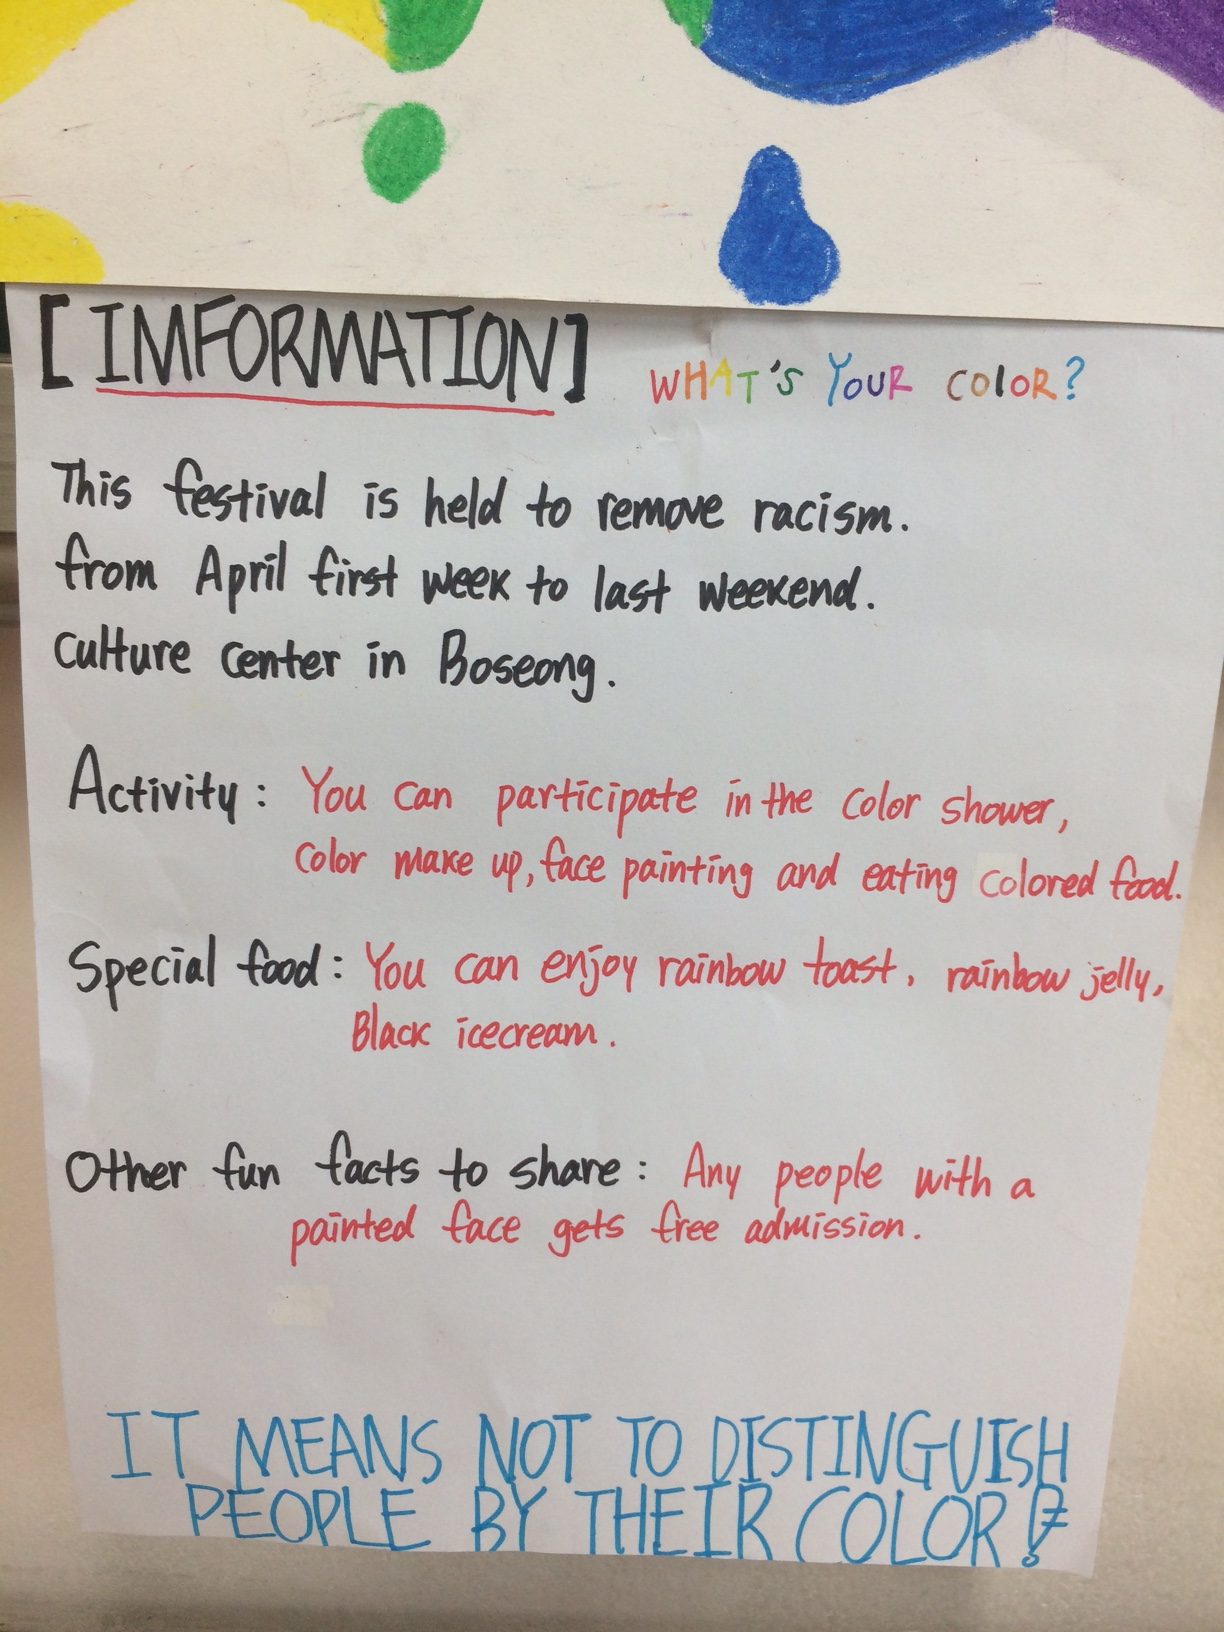 [IMFORMATION] WHAT'S YOUR COLOR?
This festival is held to remove racism.
from April first week to last weekend.
culture center in Boseong.
Activity: You can participate in the color shower,
color make up, face painting and eating colored food.
Special food: You can enjoy rainbow toast, rainbow jelly,
Black icecream.
Other fun facts to share: Any people with a
painted face gets free admission.
IT MEANS NOT TO DISTINGUISH
PEOPLE BY THEIR COLOR!